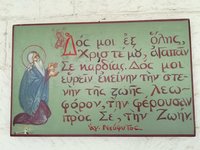 Δός μοι ἐξ ὅλης,
Χριστέ μου, ἀγαπᾶν
Σε καρδίας. Δός μοι
εὑρεῖν ἐκείνην τὴν στε-
νὴν τῆς ζωῆς Λεω-
φόρον, τὴν φέρουσαν
πρὸς Σε, τὴν Ζωήν.
Νεόφυτος